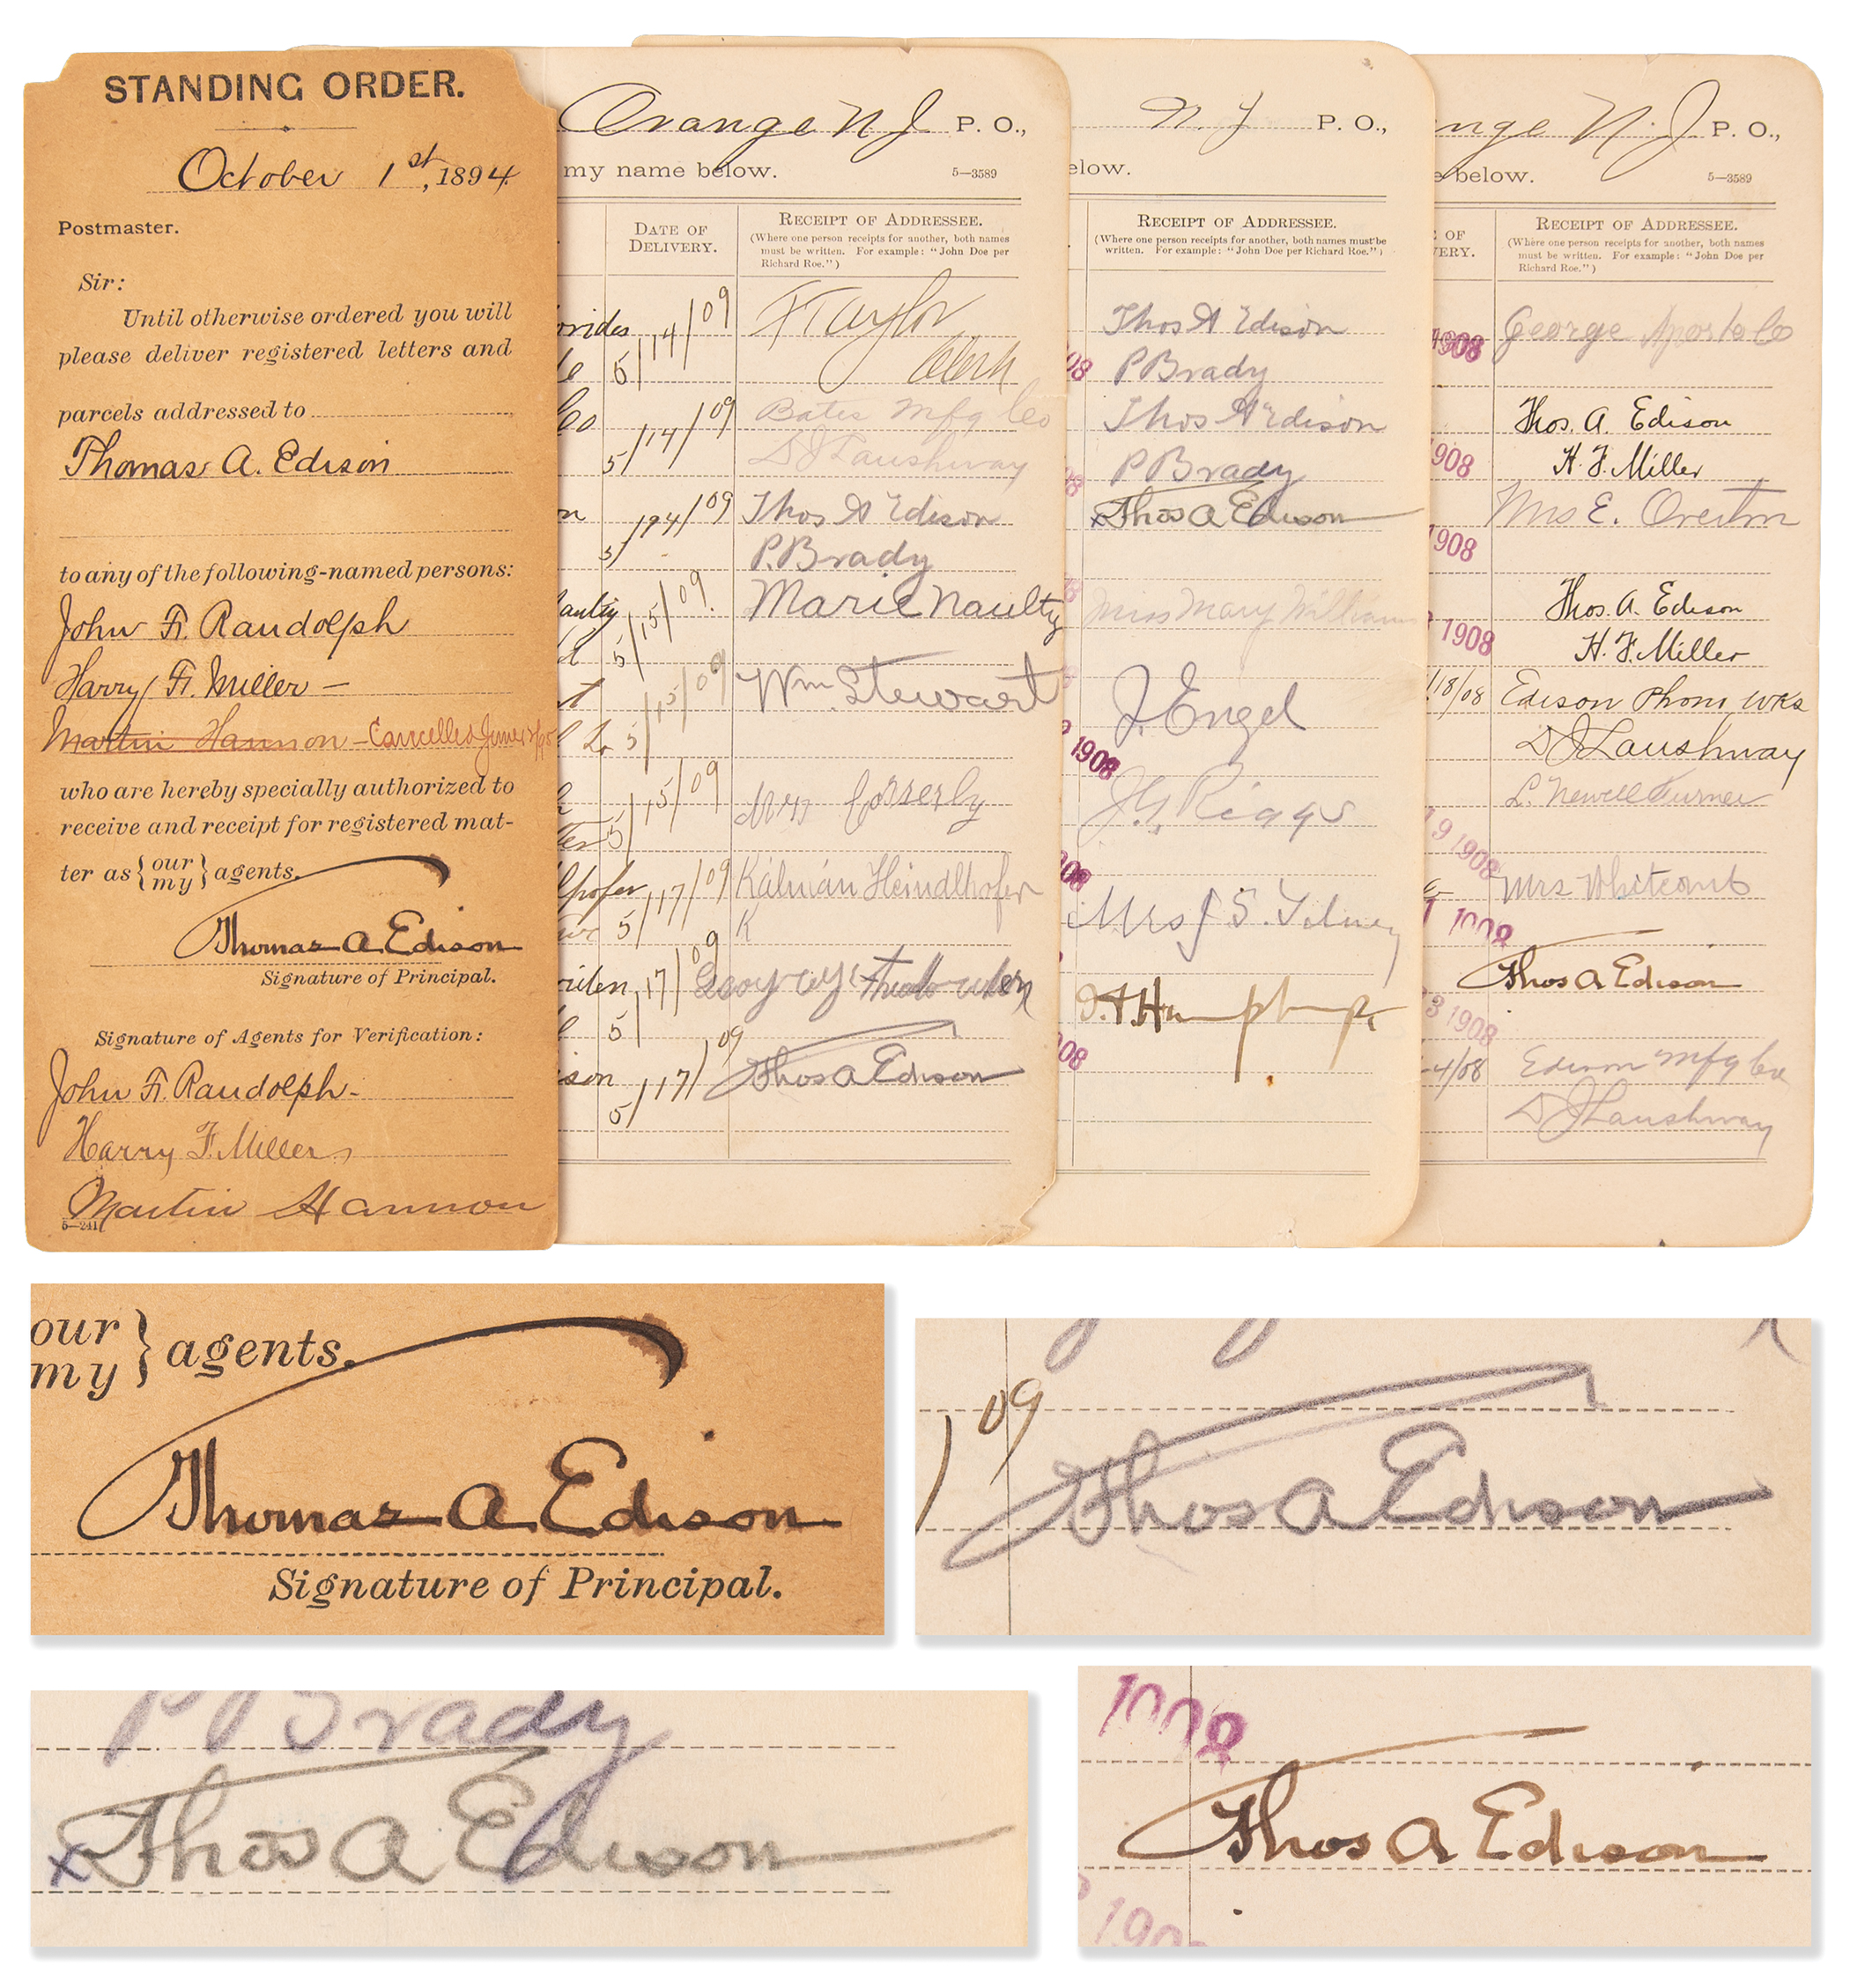 STANDING ORDER.
October 1st, 1894.
Postmaster.
Sir:
Until otherwise ordered you will
please deliver registered letters and
parcels addressed to
Thomas A. Edison
to any of the following-named persons:
John F. Randolph
Harry F. Miller –
Martin Hannon – Cancelled June
who are hereby specially authorized to
receive and receipt for registered mat-
ter as { our my } agents.
Thomas A Edison
Signature of Principal.
Signature of Agents for Verification:
John F. Randolph -
Harry F. Miller
Martin Hannon
5—241
Orange N J P. O.,
my name below. 5—3589
DATE OF DELIVERY.
RECEIPT OF ADDRESSEE.
(Where one person receipts for another, both names
must be written. For example: "John Doe per
Richard Roe.")
5/14/09 F Taylor
Clerk
5/14/09 Bates Mfg Co
D J Laushway
5/14/09 Thos A Edison
P. Brady
5/15/09. Marie Naulty
5/15/09 Wm. Stewart
5/15/09 Mrs
5/17/09 Kálmán Heindlhofer
K
5/17/09
5/17/09 Thos A Edison
N. J P. O.,
elow.
RECEIPT OF ADDRESSEE.
(Where one person receipts for another, both names must be
written. For example: "John Doe per Richard Roe.")
Thos A Edison
08 P Brady
Thos A Edison
P Brady
x Thos A Edison
Miss Mary William
J. Engel
1908
J. G. Riggs
08
Mrs J S. Tilney
08
nge N. J. P. O.,
e below. 5—3589
OF
ERY.
RECEIPT OF ADDRESSEE.
(Where one person receipts for another, both names
must be written. For example: "John Doe per
Richard Roe.")
1908 George
Thos. A. Edison
1908 H. F. Miller
Mrs E. Overton
1908
Thos. A. Edison
1908 H. F. Miller
/18/08 Edison Phono Wks
D J Laushway
L. Newell Turner
19 1908
Mrs Whitcomb
1908
Thos A Edison
3 1908
4/08 Edison Mfg Co
D J Laushway
our
my } agents.
Thomas A Edison
Signature of Principal.
09
Thos A Edison
P Brady
x Thos A Edison
1908
Thos A Edison
190